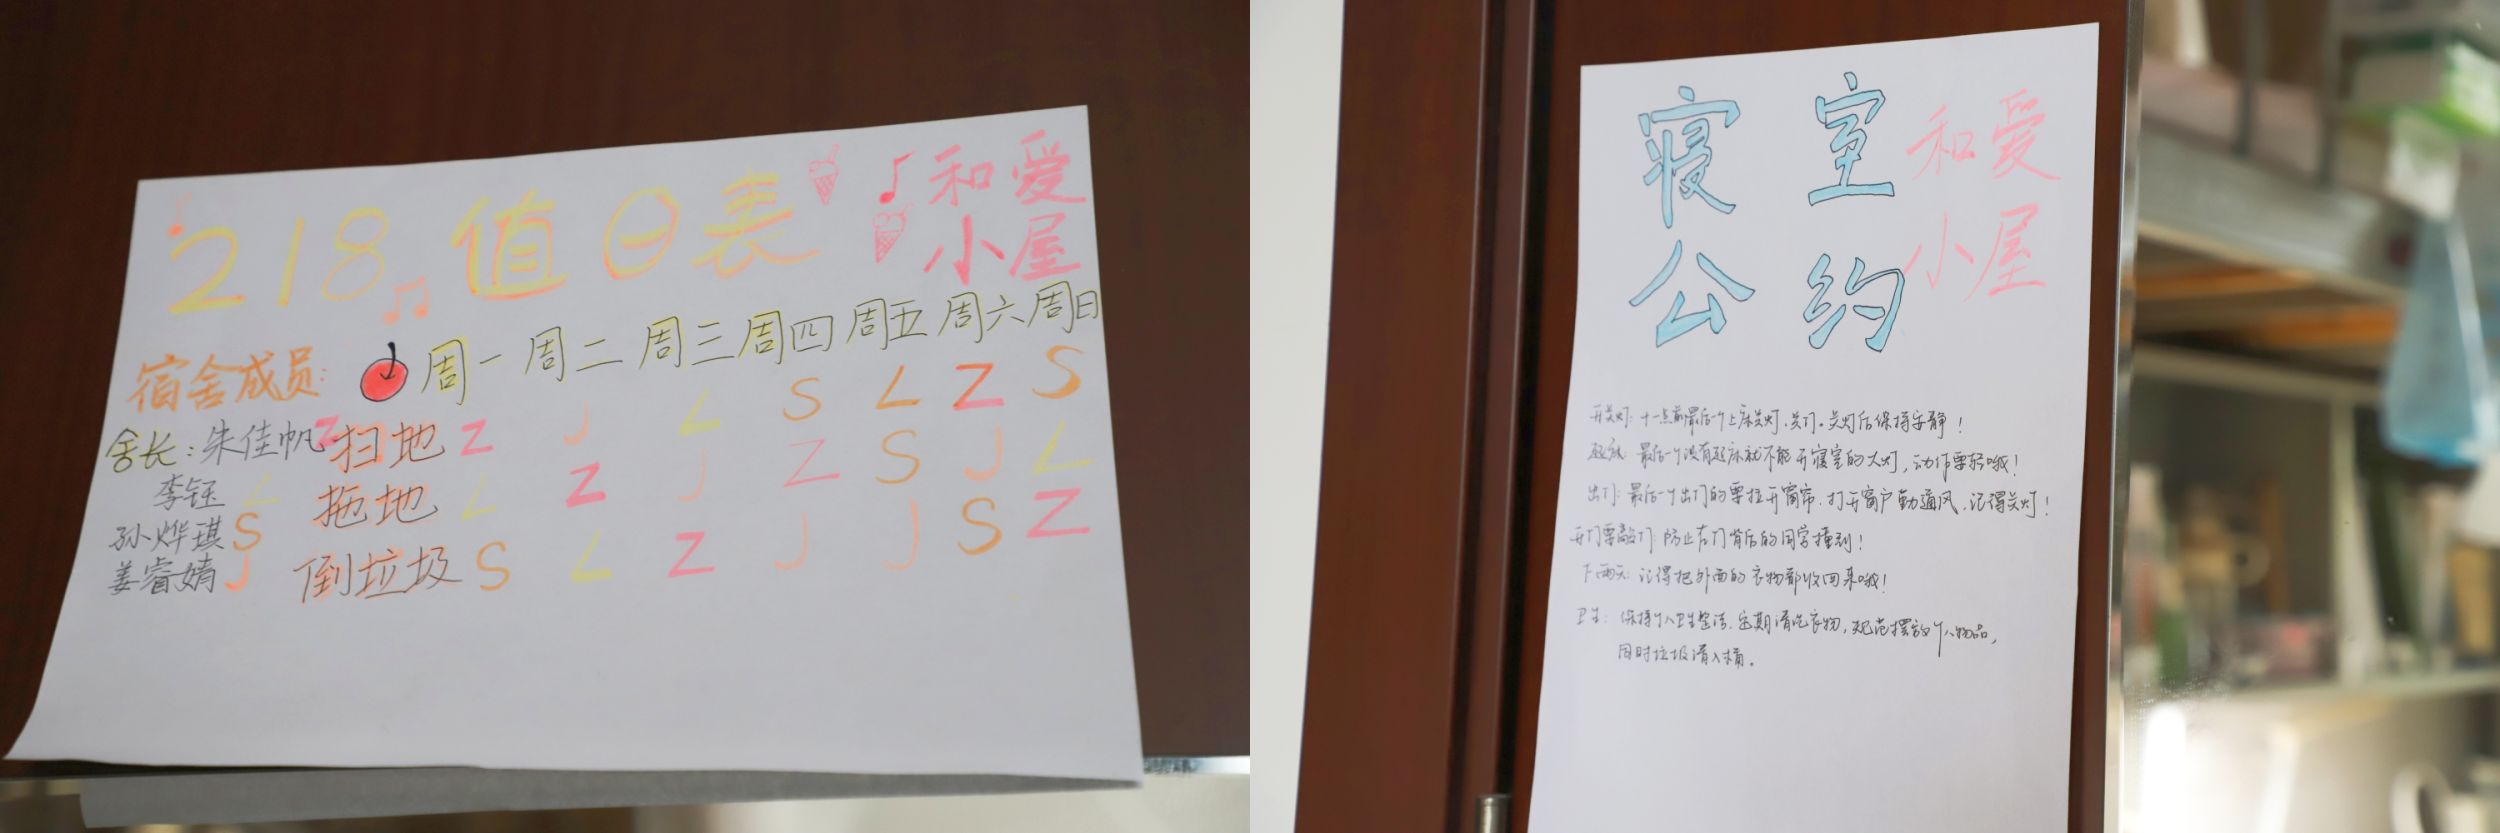 218 值日表
和爱
小屋
宿舍成员: 周一 周二 周三 周四 周五 周六 周日
舍长: 朱佳帆 Z 扫地 Z J L S L Z S
李钰 L 拖地 L Z J Z S J L
孙烨琪 S
姜睿婧 J 倒垃圾 S L Z J J S Z
寝室
公约
和爱
小屋
开关灯: 十一点前最后一个上床关灯、关门。关灯后保持安静!
起床: 最后一个没有起床就不能开寝室的大灯, 动作要轻哦!
出门: 最后一个出门的要拉开窗帘, 打开窗户勤通风, 记得关灯!
开门要敲门: 防止在门背后的同学撞到!
下雨天: 记得把外面的衣物都收回来哦!
卫生: 保持个人卫生整洁, 定期清洗衣物, 规范摆放个人物品,
同时垃圾清入桶。